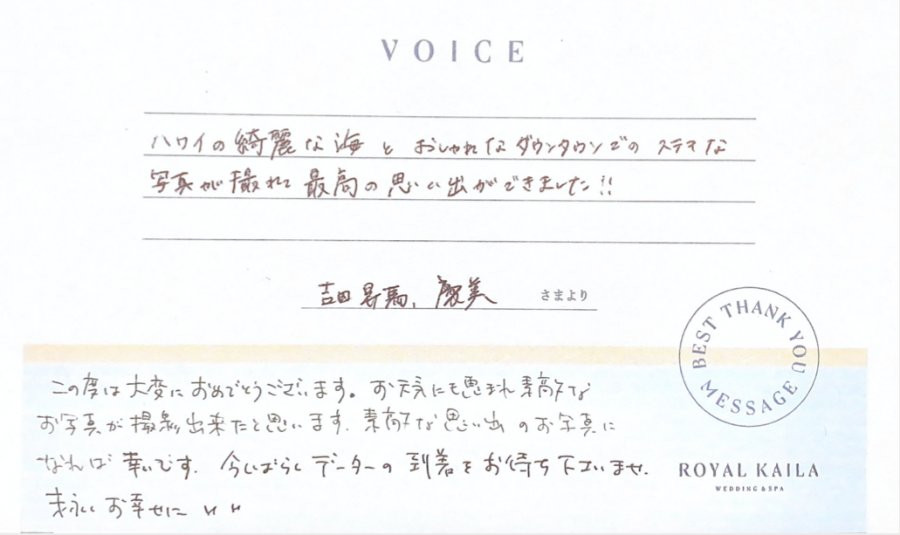 VOICE
ハワイの綺麗な海とおしゃれなダウンタウンでのステキな
写真が撮れて最高の思い出ができました!!
吉田 昇馬、 美 さまより
BEST THANK YOU MESSAGE
この度は大変におめでとうございます。お天気にも恵まれ素敵な
お写真が撮影出来たと思います。素敵な思い出のお写真に
なれば幸いです。今しばらくデーターの到着をお待ち下さいませ.
ROYAL KAILA
WEDDING & SPA
お幸せに